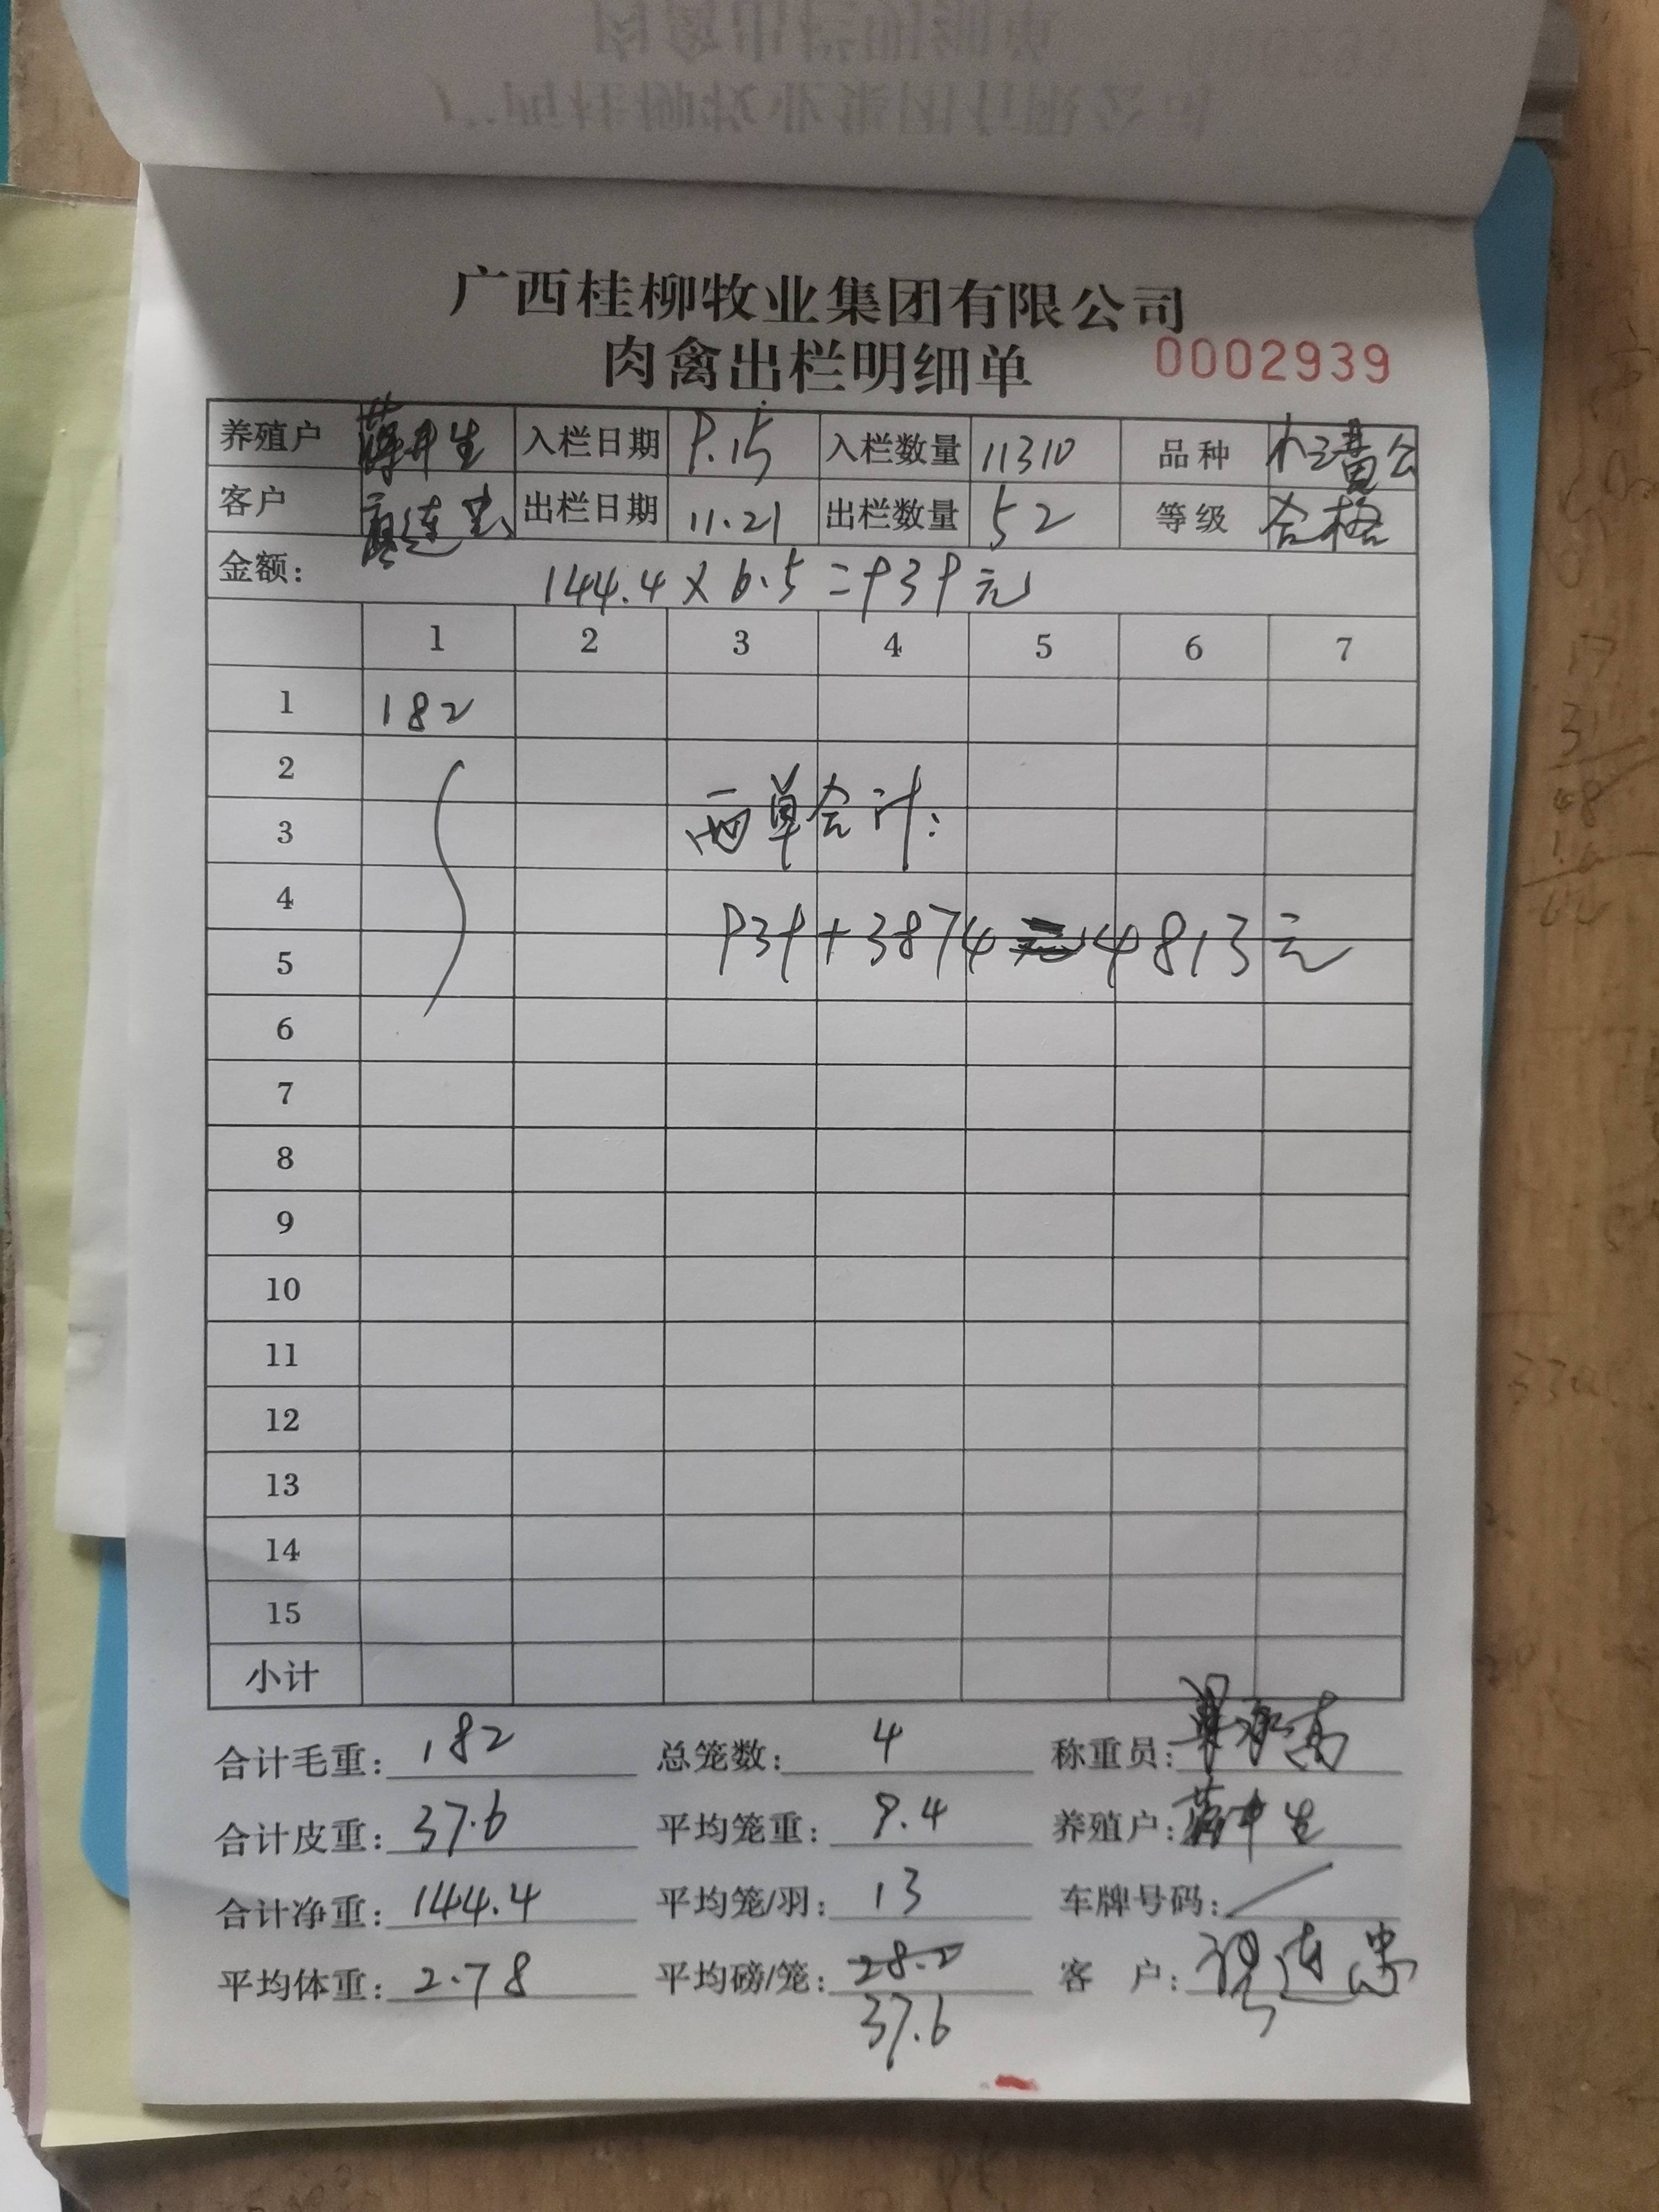 广西桂柳牧业集团有限公司
肉禽出栏明细单 0002939
养殖户 生 入栏日期 9.15 入栏数量 11310 品种 黄公
客户 廖连忠 出栏日期 11.21 出栏数量 52 等级 合格
金额: 144.4×6.5=939元
1 2 3 4 5 6 7
1 182
2
3 两单合计:
4
5 939+3874 4813元
6
7
8
9
10
11
12
13
14
15
小计
合计毛重: 182 总笼数: 4 称重员:
合计皮重: 37.6 平均笼重: 9.4 养殖户: 生
合计净重: 144.4 平均笼/羽: 13 车牌号码: /
平均体重: 2.78 平均磅/笼: 28.2 客 户: 廖连忠
37.6